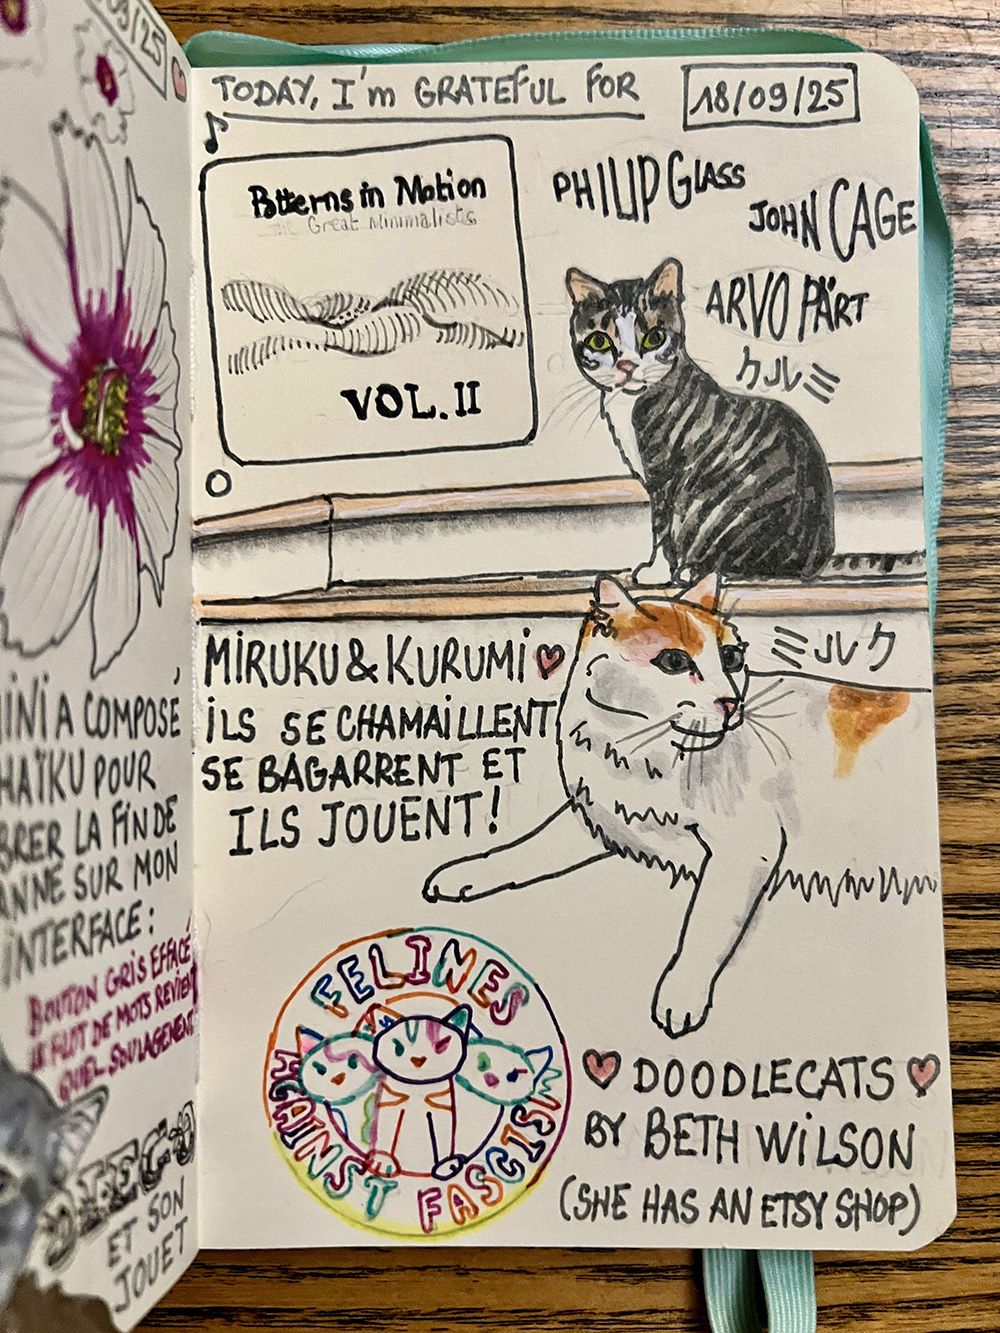 09/25
TODAY, I'm GRATEFUL FOR
18/09/25
Patterns in Motion
The Great Minimalists
VOL. II
PHILIP GLASS
JOHN CAGE
ARVO PÄRT
クルミ
MIRUKU & KURUMI
ILS SE CHAMAILLENT
SE BAGARRENT ET
ILS JOUENT!
ミルク
FELINES AGAINST FASCISM
DOODLECATS
BY BETH WILSON
(SHE HAS AN ETSY SHOP)
A COMPOSÉ
HAÏKU POUR
LA FIN DE
SUR MON
INTERFACE:
BOUTON GRIS EFFACÉ
LE FLOT DE MOTS REVIENT
QUEL SOULAGEMENT
ET SON
JOUET